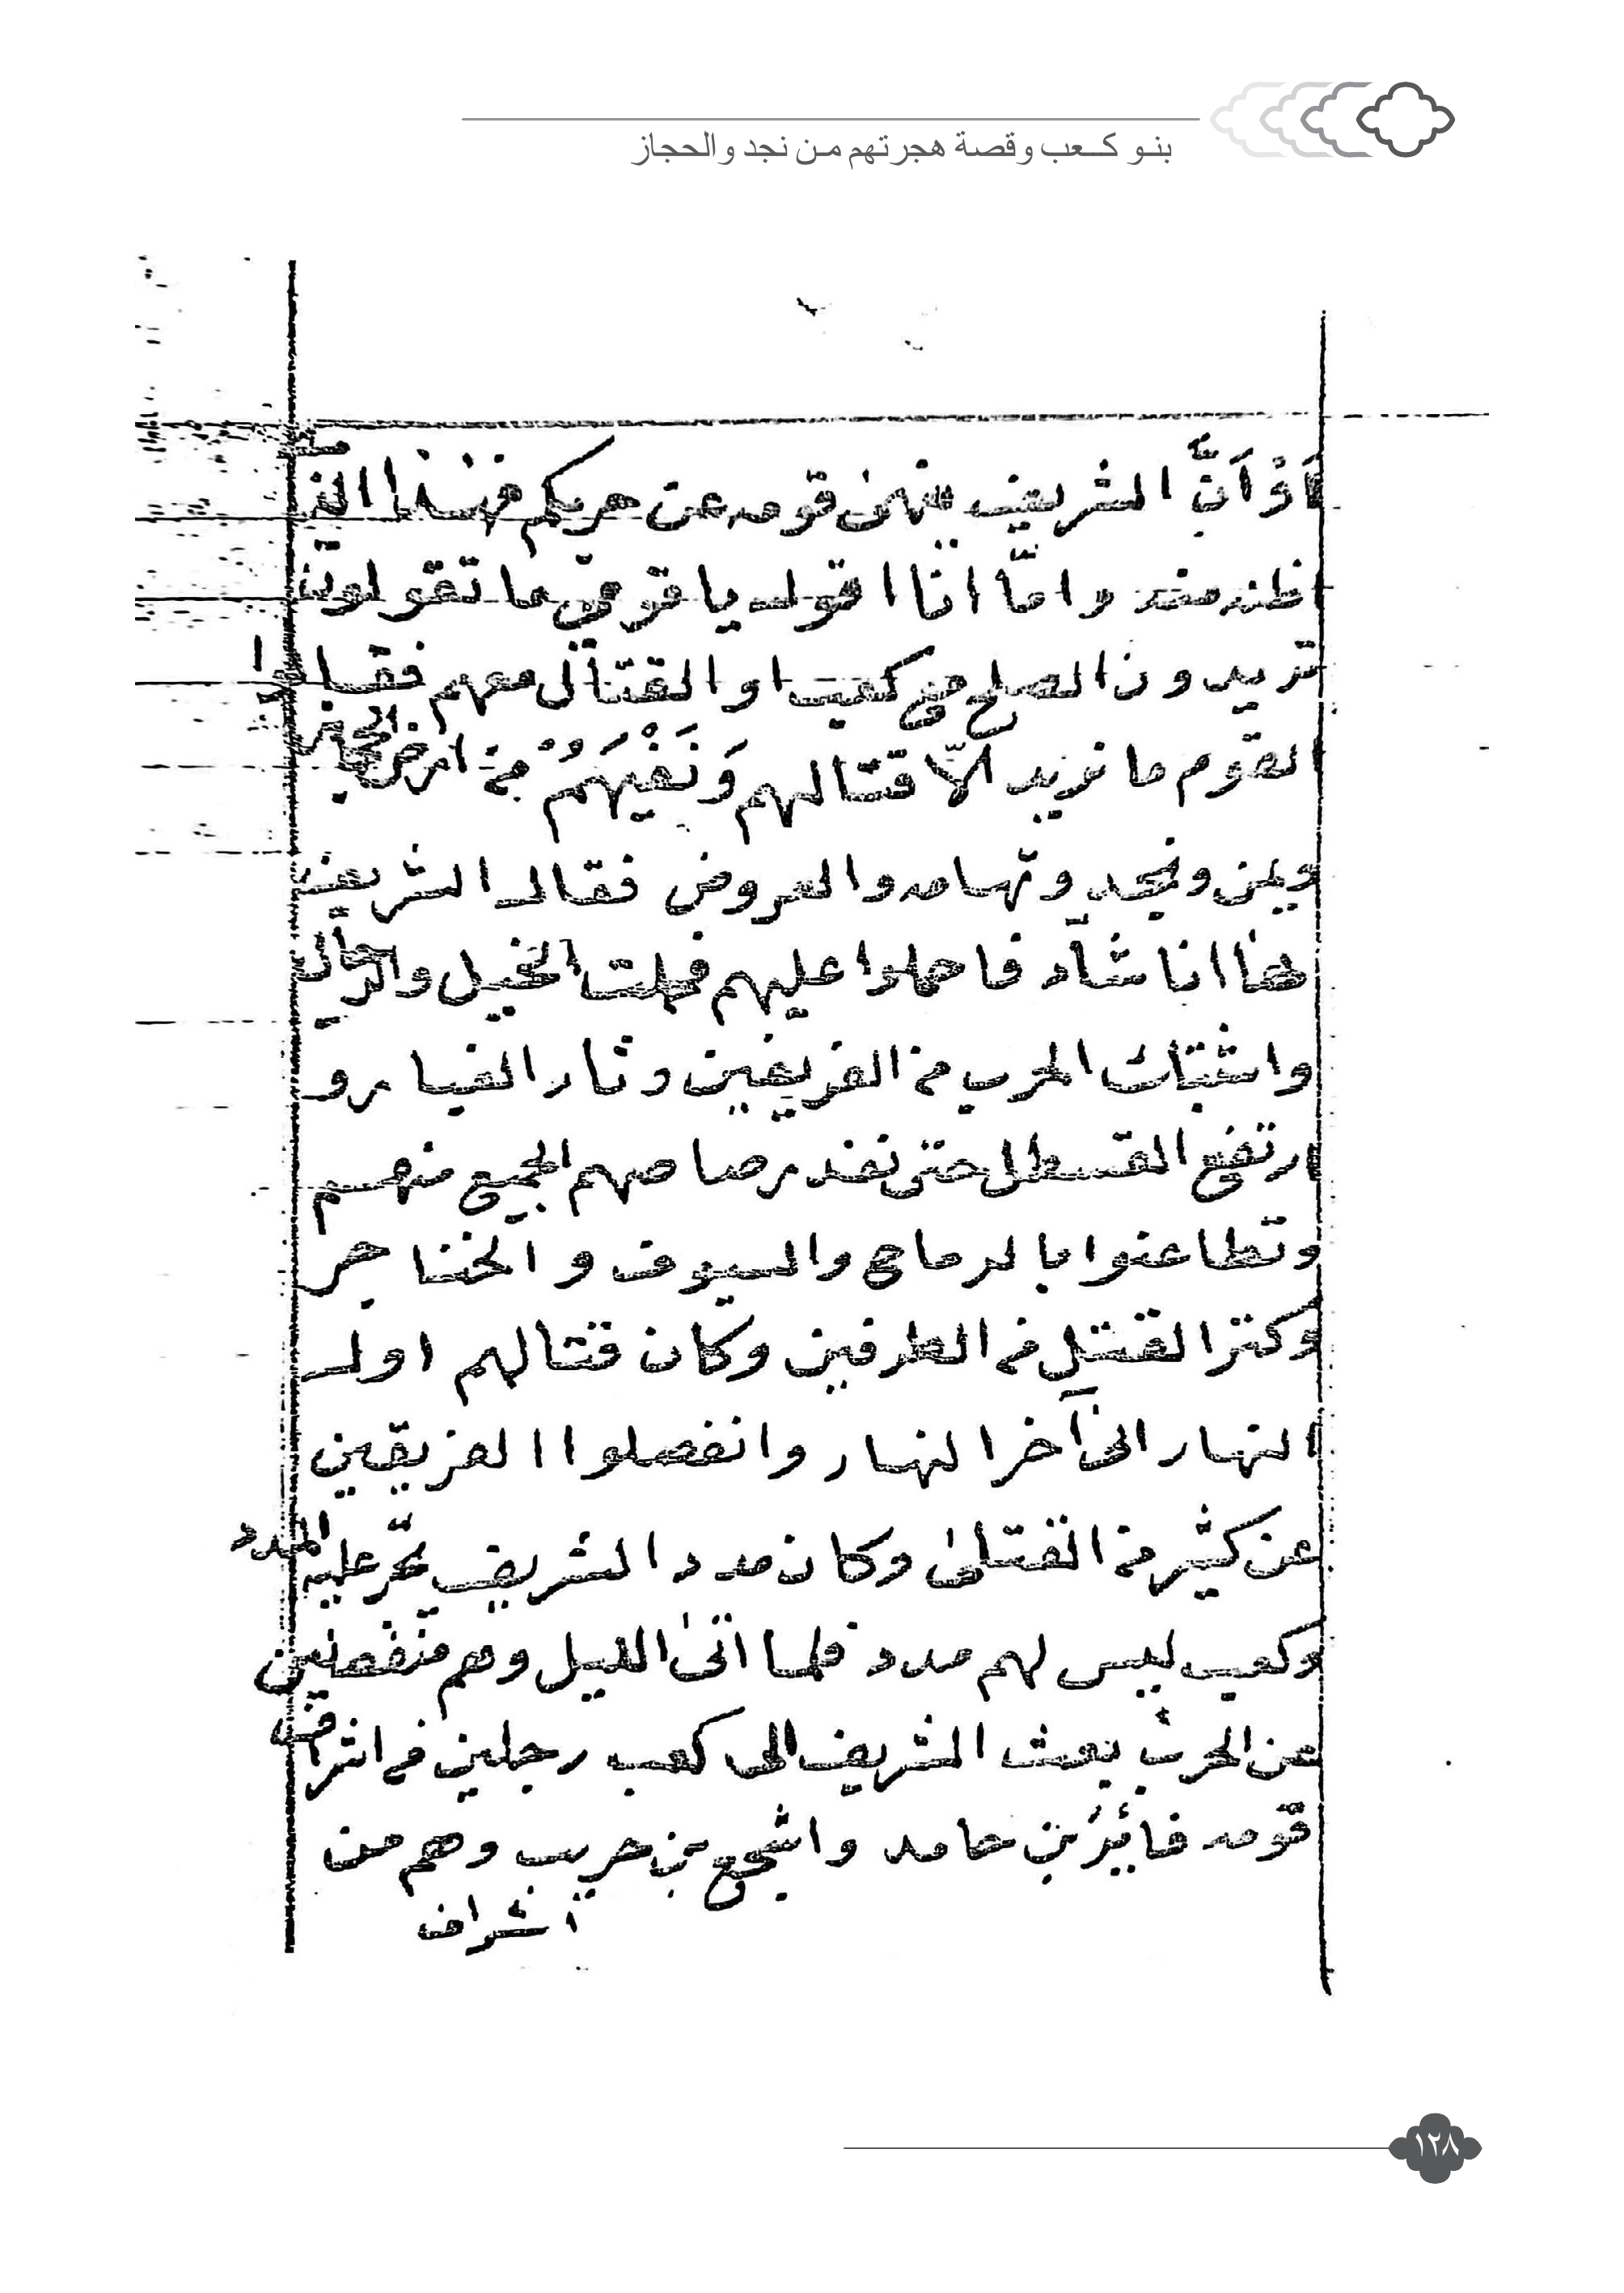 بنو كعب وقصة هجرتهم من نجد والحجاز
اوْ اَنَّ الشريف ينهىٰ قومه عن حربكم فهٰذا الذي
اظنه منه واما انا اقول يا قومي ما تقولون
تريدون الصلح مع كعب او القتال معهم فقالوا
القوم ما نريد الّا قتالهم وَنَفْيَهُمْ من ارض الحجاز
ويمن ونجد وتهامه والعروض فقال الشريف
هٰا انا شآء فاحملوا عليهم فحملت الخيل والرجال
واشتبك الحرب من الفريقين وثار الغبار و
ارتفع القسطل حتى نفد رصاصهم الجميع منهم
وتطاعنوا بالرماح والسيوف والخناجر
وكثر القتل في الطرفين وكان قتالهم اول
النهار الىٰ آخر النهار وانفصلوا الفريقين
عن كثير من القتلىٰ وكان مدد الشريف يجرّ عليه المدد
وكعب ليس لهم مدد فلما اتىٰ الليل وهم منفصلين
عن الحرب بعث الشريف الى كعب رجلين من اشراف
قومه فائِزُ بن حامد واشجع بن حرب وهم من
اشراف
١٢٨